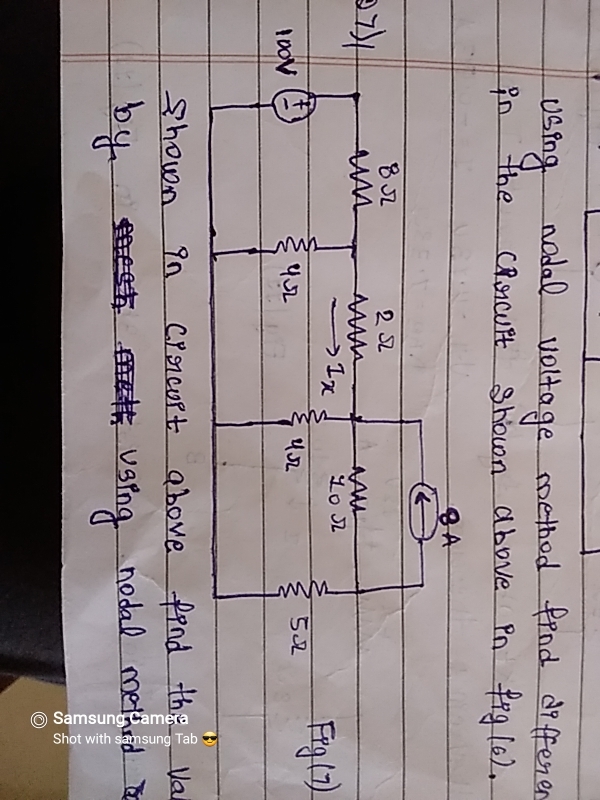 using nodal voltage method find differen
in the circuit shown above in fig(6).
Q7)
8A
8Ω
2Ω
10Ω
100V
+
-
Ix
4Ω
4Ω
5Ω
Fig(7)
Shown in circuit above find the val
by using nodal method
Samsung Camera
Shot with samsung Tab 😎